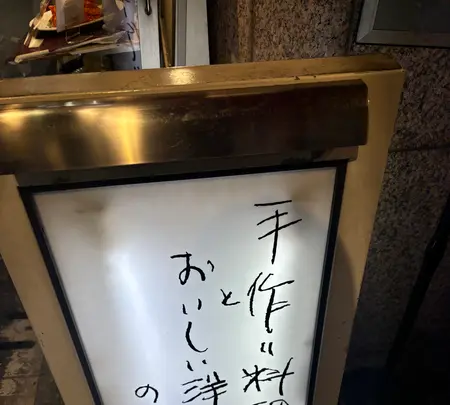 手作り料理
と
おいしい洋
の